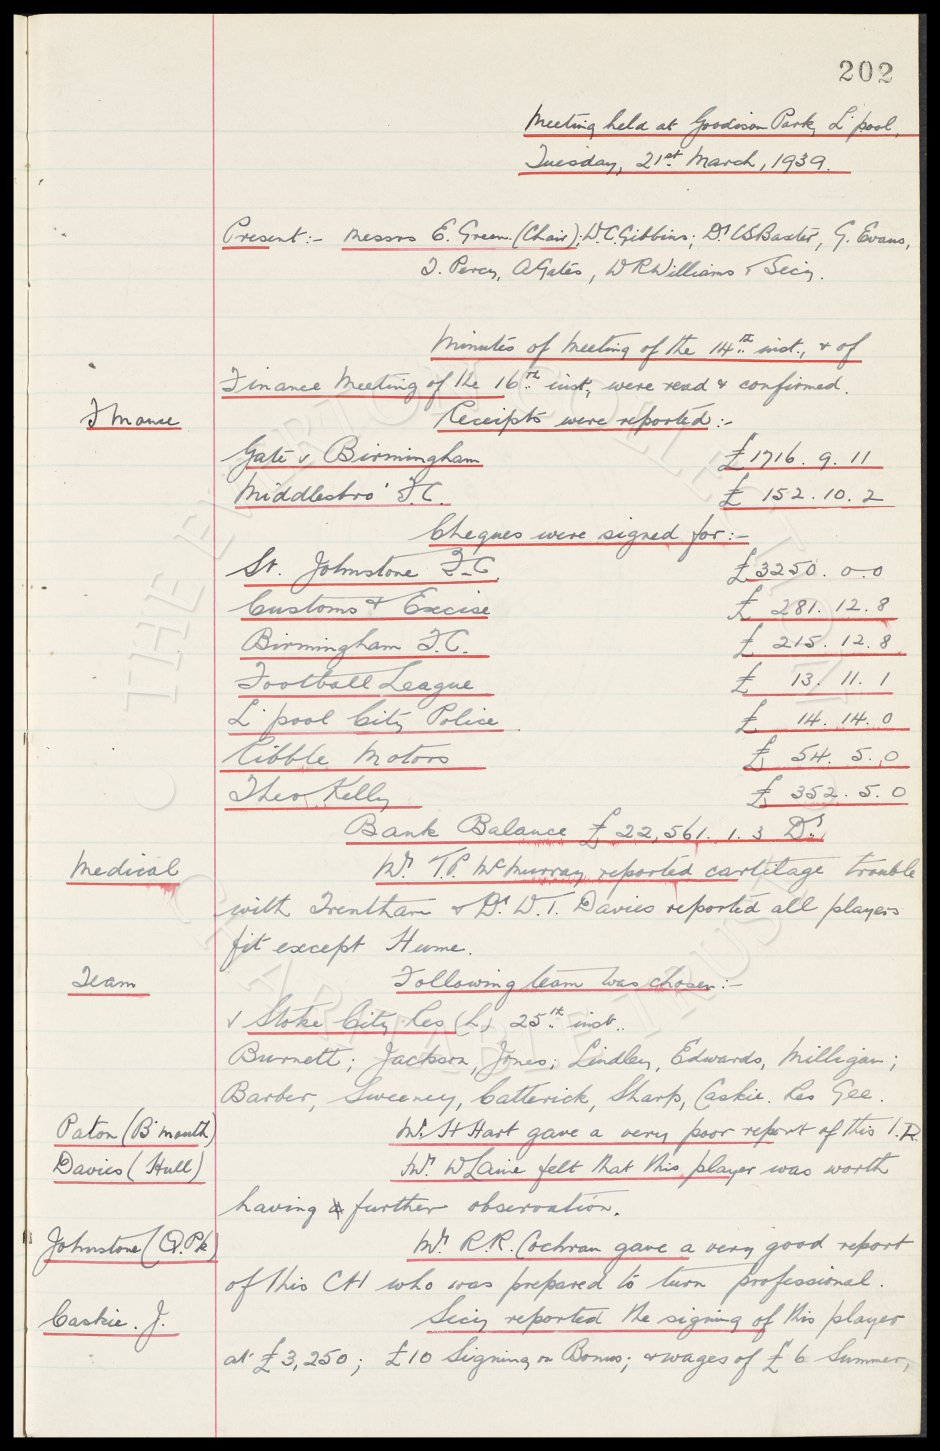 202
Meeting held at Goodison Park, L'pool,
Tuesday, 21st March, 1939.
Present:- Messrs E. Green (Chair); W.C. Gibbins; Dr CS Baxter, G. Evans,
T. Percy, A Gates, W R Williams & Secy.
Minutes of Meeting of the 14th inst., & of
Finance Meeting of the 16th inst, were read & confirmed.
Finance Receipts were reported:-
Gate v Birmingham £1716. 9. 11
Middlesbro' F.C. £ 152. 10. 2
Cheques were signed for:-
St. Johnstone F.C. £3250. 0. 0
Customs & Excise £ 281. 12. 8
Birmingham F.C. £ 215. 12. 8
Football League £ 13. 11. 1
L'pool City Police £ 14. 14. 0
Ribble Motors £ 54. 5. 0
Theo Kelly £ 352. 5. 0
Bank Balance £22,561. 1. 3 Dr
Medical Mr. T.P. McMurray reported cartilage trouble
with Trentham & Dr W.T. Davies reported all players
fit except Hume.
Team Following team was chosen:-
v Stoke City Res (H) 25th inst.
Burnett; Jackson, Jones; Lindley, Edwards, Milligan;
Barber, Sweeney, Catterick, Sharp, Caskie. Res Gee.
Paton (B'mouth) Mr. H Hart gave a very poor report of this I.R.
Davies (Hull) Mr. W Laine felt that this player was worth
having further observation.
Johnstone (Q.Pk) Mr. R.R. Cochran gave a very good report
of this CH who was prepared to turn professional.
Caskie. J. Secy reported the signing of this player
at £3,250; £10 Signing on Bonus; & wages of £6 Summer,
THE EVERTON COLLECTION
CHARITABLE TRUST